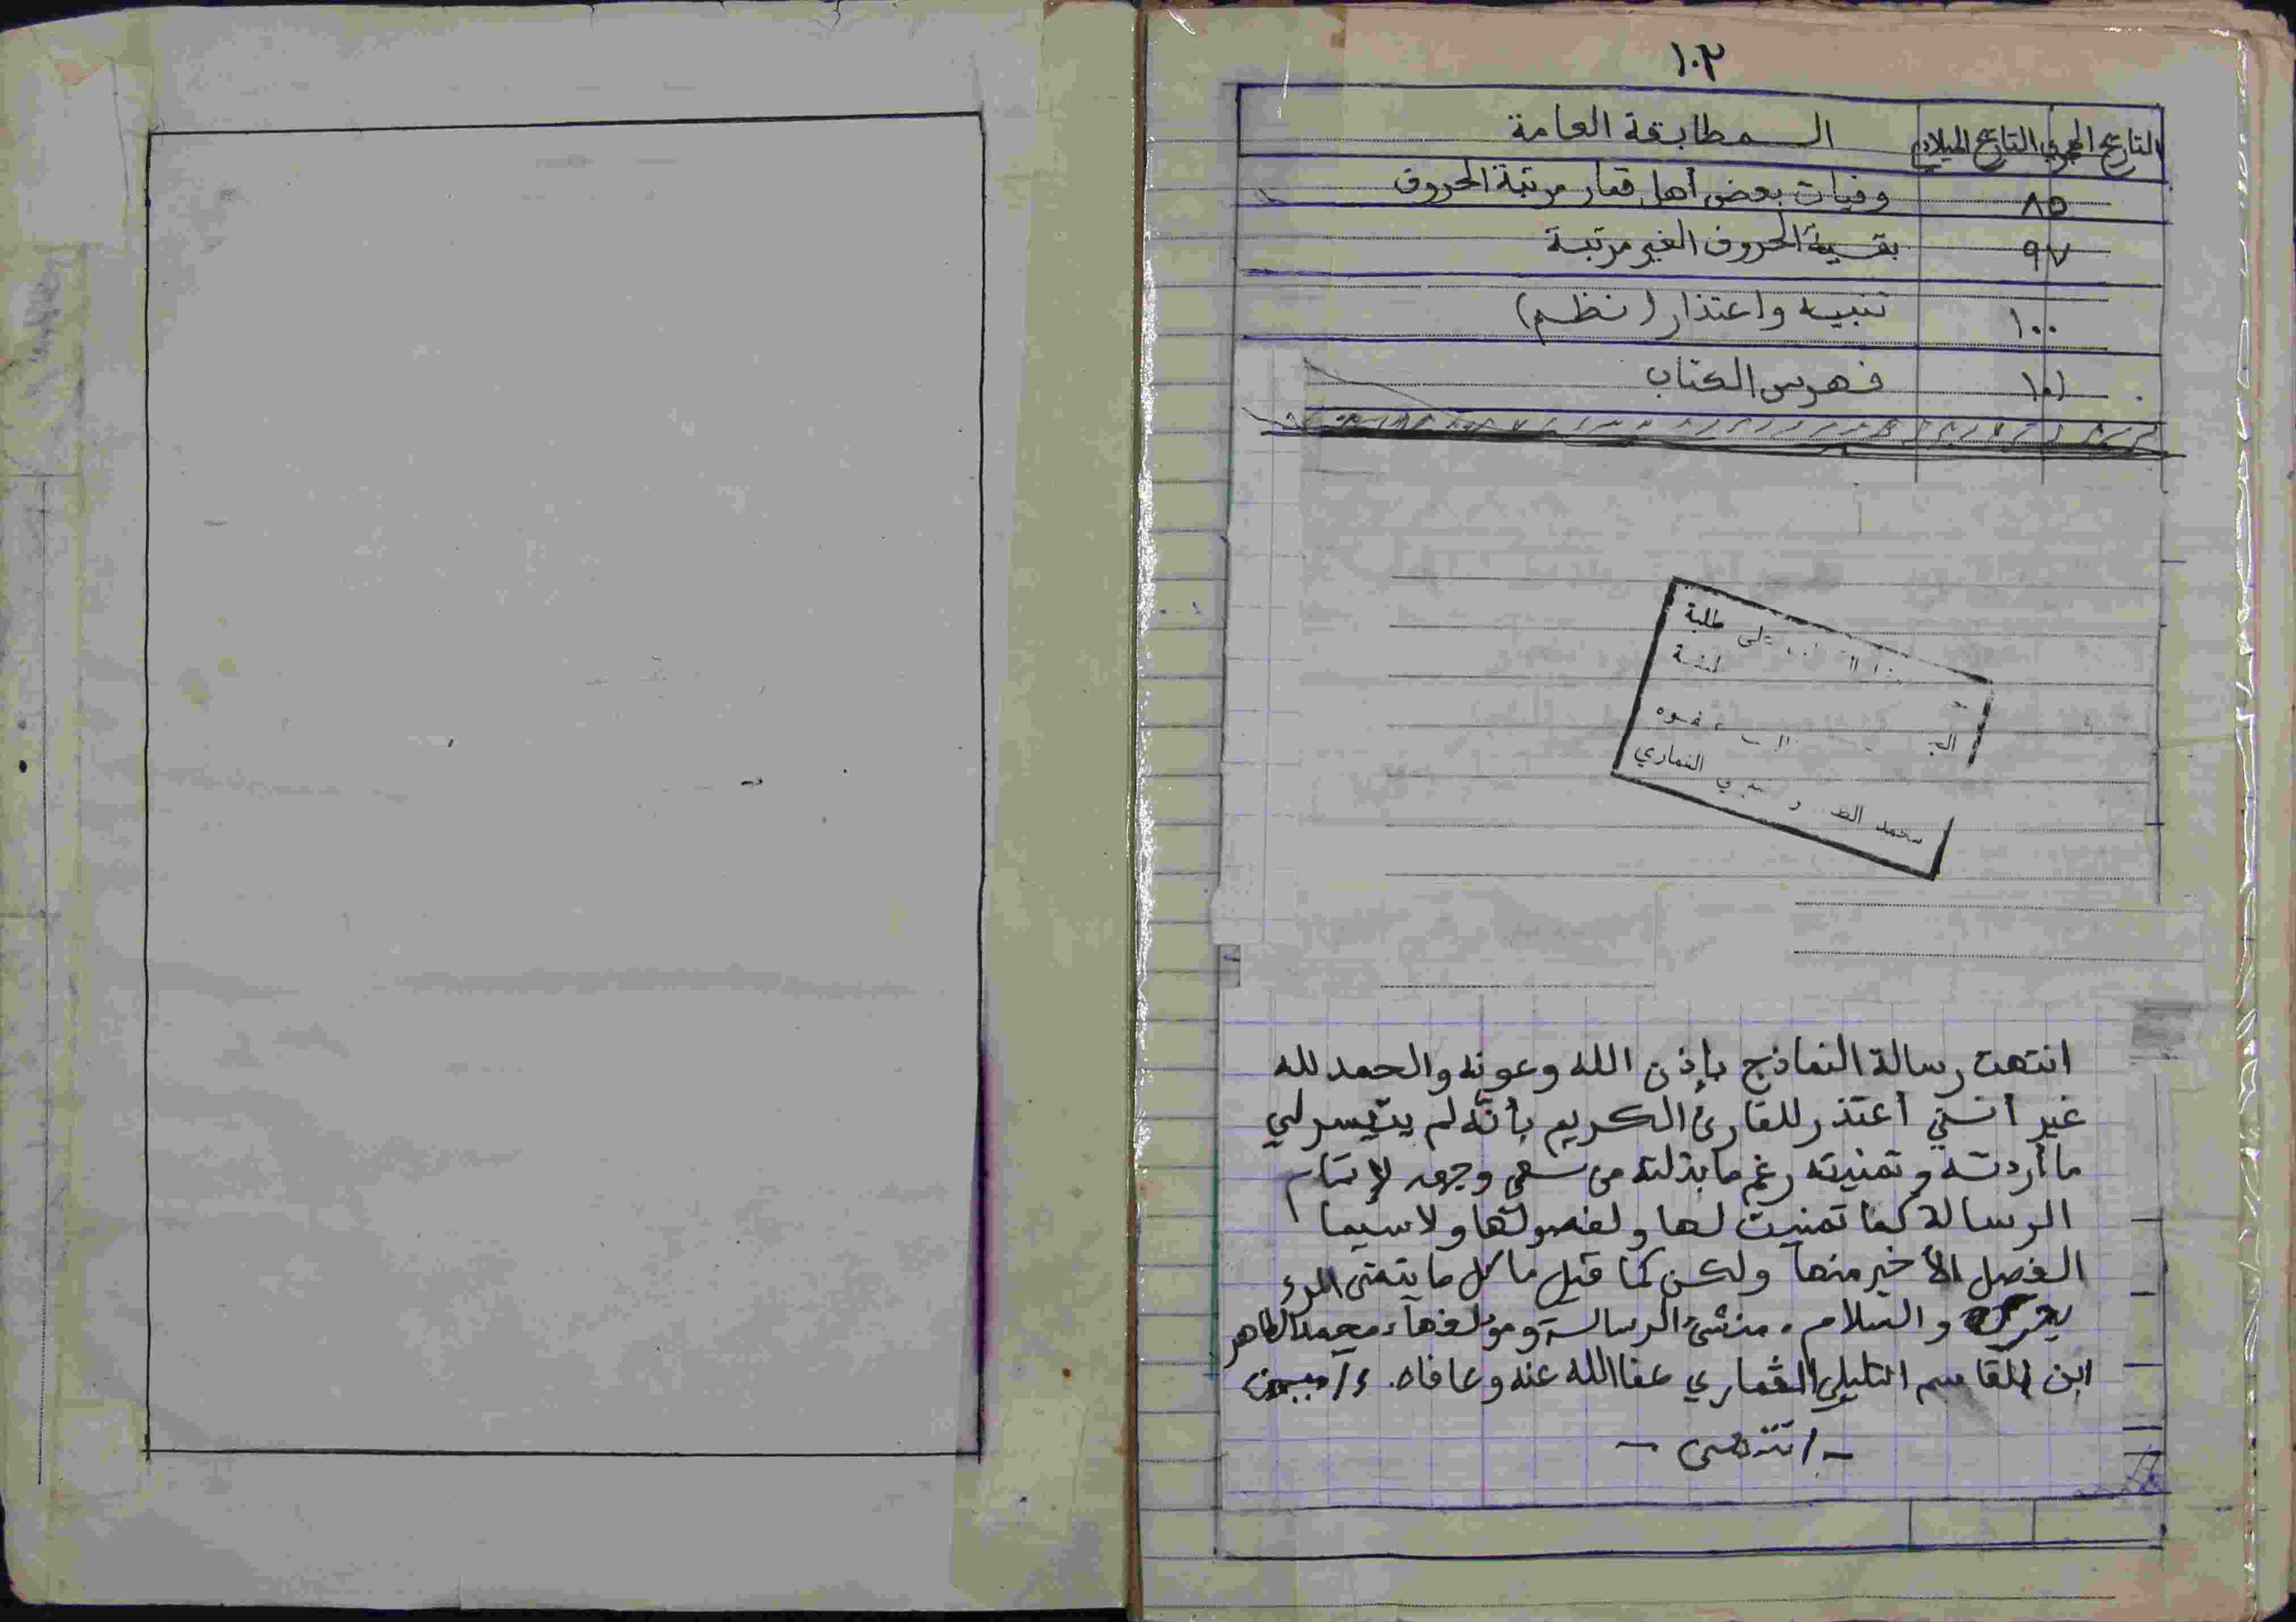 ١٠٢
التاريخ الهجري التاريخ الميلادي المطابقة العامة
٨٥ وفيات بعض أهل قمار مرتبة الحروف
٩٧ بقية الحروف الغير مرتبة
١٠٠ تنبيه واعتذار (نظم)
١٠١ فهرس الكتاب
على طلبة
محمد الط القماري
انتهت رسالة النماذج بإذن الله وعونه والحمد لله
غير أنني أعتذر للقارئ الكريم بأنه لم يتيسر لي
ما أردته وتمنيته رغم ما بذلته من سعي وجهد لإتمام
الرسالة كما تمنيت لها ولفصولها ولاسيما
الفصل الأخير منها ولكن كما قيل ما كل ما يتمنى المرء
يدركه والسلام . منشئ الرسالة ومؤلفها ، محمد الطاهر
ابن بلقاسم التليلي القماري عفا الله عنه وعافاه .
- انتهى -